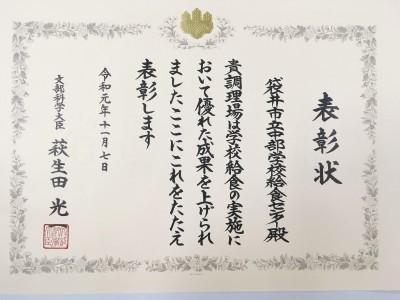 表彰状
袋井市立中部学校給食センター殿
貴調理場は学校給食の実施に
おいて優れた成果を上げられ
ましたここにこれをたたえ
表彰します
令和元年十一月七日
文部科学大臣 萩生田光